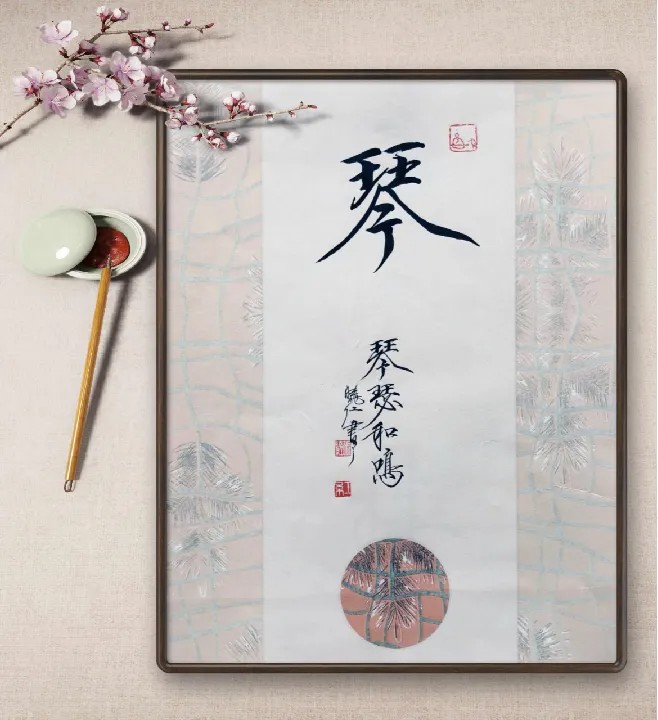 琴
琴瑟和鳴
曉仁書